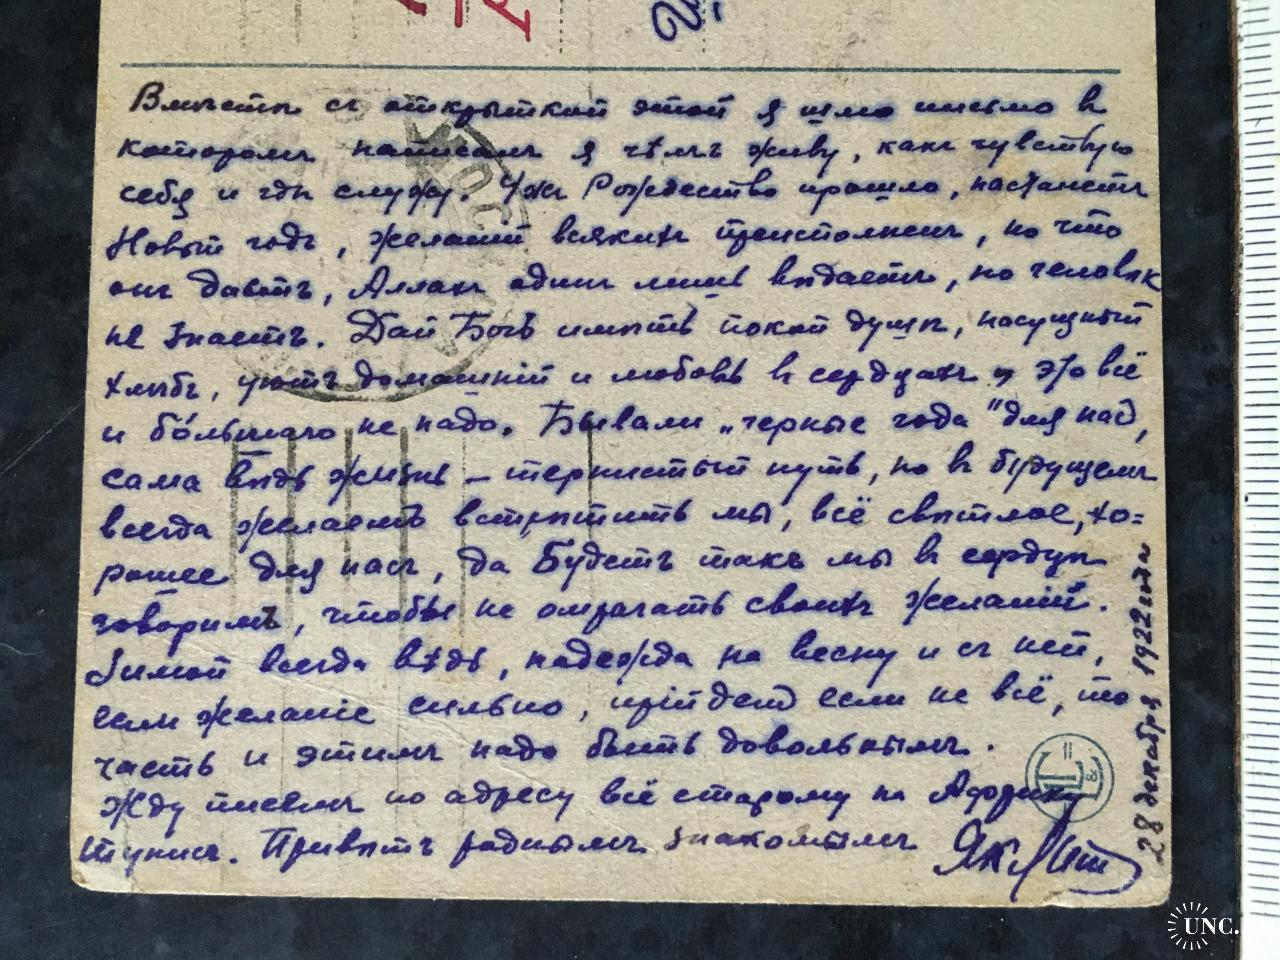 Вместѣ съ открыткой этой я шлю письмо въ
которомъ написалъ я чѣмъ живу, какъ чувствую
себя и гдѣ служу. Ужъ Рождество прошло, настанетъ
Новый годъ, желаній всякихъ преисполненъ, но что
онъ дастъ, Аллахъ одинъ лишь вѣдаетъ, но человѣкъ
не знаетъ. Дай Богъ имѣть покой души, насущный
хлѣбъ, уютъ домашній и любовь въ сердцахъ и это всё
и бо́льшаго не надо. Бывали „черные года" для насъ,
сама вѣдь жизнь – тернистый путь, но въ будущемъ
всегда желаемъ встрѣтить мы, всё свѣтлое, хо=
рошее для насъ, да будетъ такъ мы въ сердцѣ
говоримъ, чтобы не омрачать своихъ желаній.
Зимой всегда вѣдь, надежда на весну и съ ней,
если желаніе сильно, прійдетъ если не всё, то
часть и этимъ надо быть довольнымъ.
Жду писемъ по адресу всё старому на Африку
Тунисъ. Привѣтъ роднымъ знакомымъ
28 декабря 1922 года
UNC.